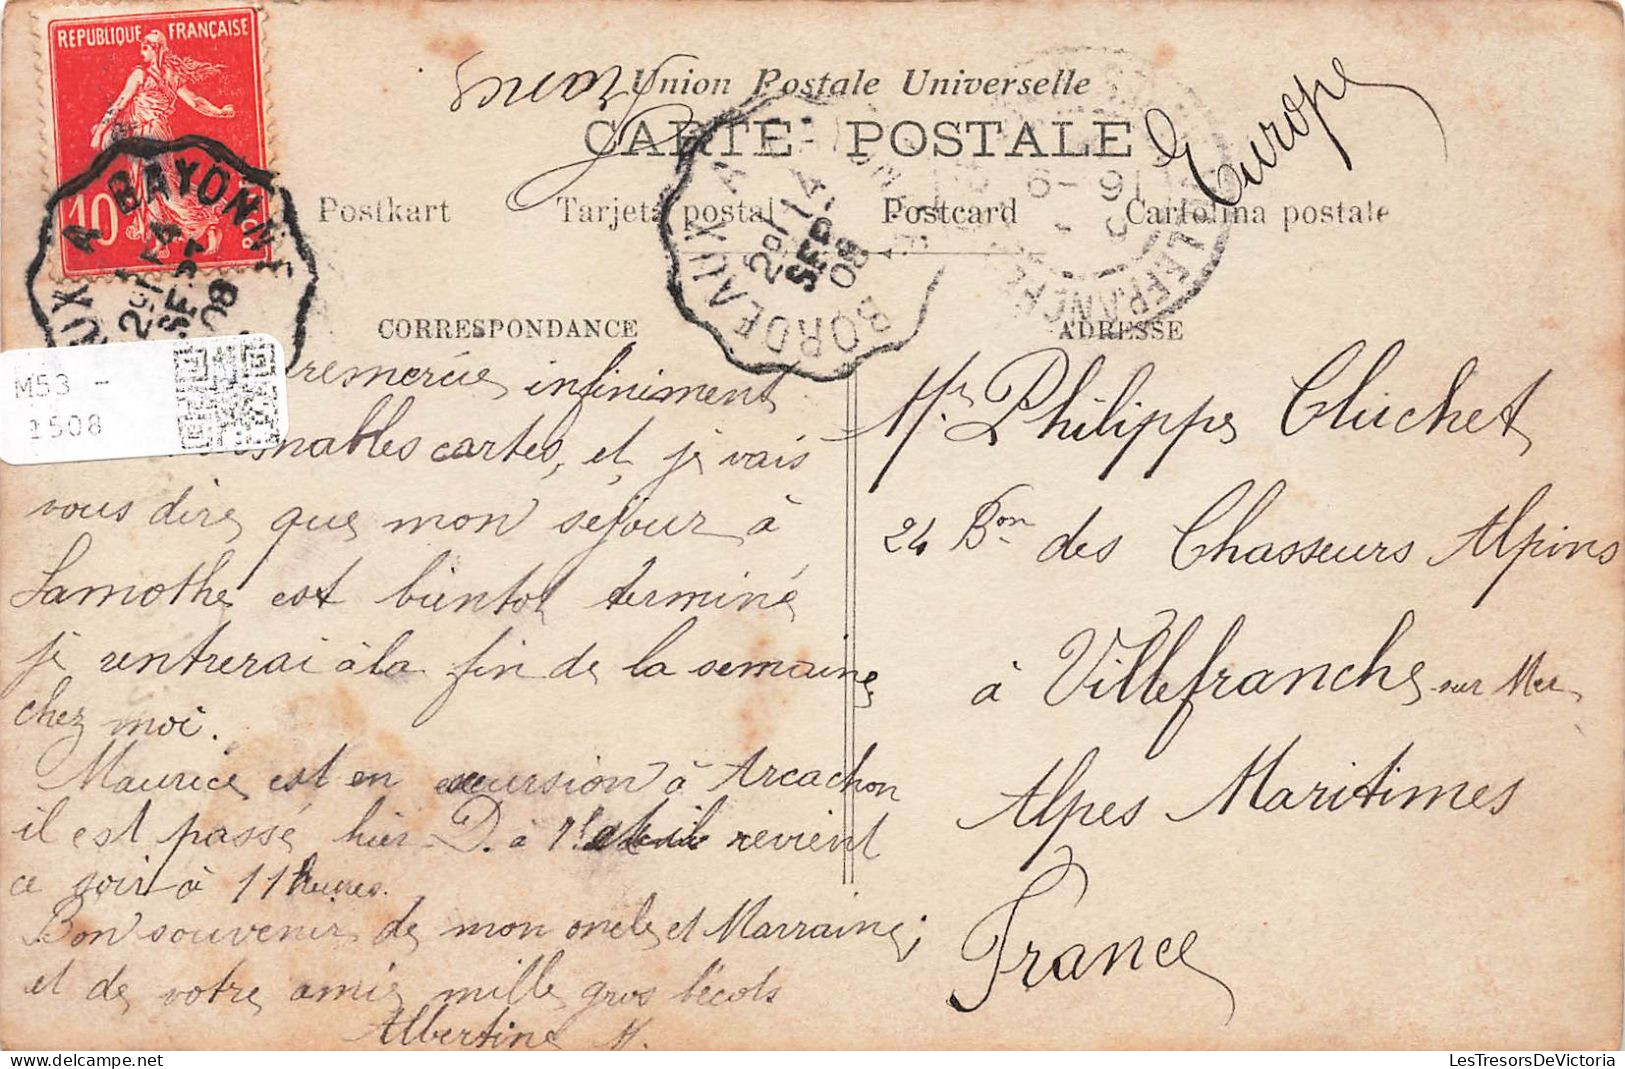 REPUBLIQUE FRANÇAISE
10
BORDEAUX A BAYONNE
14
SEPT
08
France
Union Postale Universelle
CARTE POSTALE
Europe
Postkart Tarjeta postal Postcard Cartolina postale
CORRESPONDANCE
ADRESSE
BORDEAUX A
14
SEPT
08
16-9
VILLEFRANCHE
M53 -
1508
remercie infiniment
cartes, et je vais
vous dire que mon séjour à
Lamothe est bientot terminé
je rentrerai à la fin de la semaine
chez moi.
Maurice est en excursion à Arcachon
il est passé hier D. à 1h et il revient
ce soir à 11 heures.
Bon souvenir de mon oncle et Marraine;
et de votre amie mille gros bécots
Albertine M.
Mr Philippe Cluchet
24 Bon des Chasseurs Alpins
à Villefranche sur Mer
Alpes Maritimes
France
LesTresorsDeVictoria